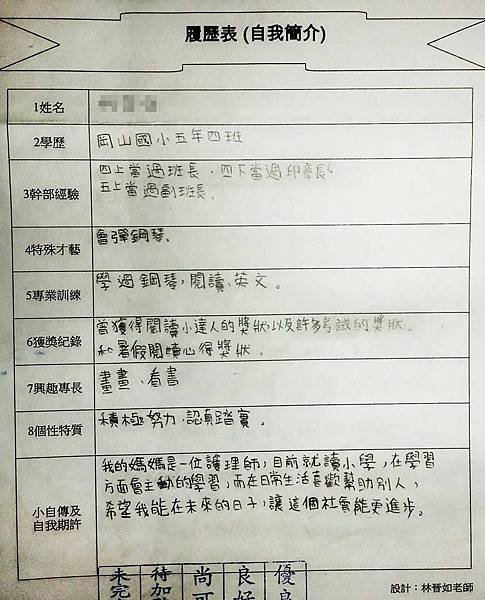 履歷表 (自我簡介)
1姓名
2學歷
岡山國小五年四班
3幹部經驗
四上當過班長、四下當過印章長、
五上當過副班長。
4特殊才藝
會彈鋼琴。
5專業訓練
學過鋼琴,閱讀、英文。
6獲獎紀錄
曾獲得閱讀小達人的獎狀以及許多考試的獎狀
和暑假閱讀心得獎狀。
7興趣專長
畫畫、看書
8個性特質
積極努力、認真踏實。
小自傳及
自我期許
我的媽媽是一位護理師,目前就讀小學,在學習
方面會主動的學習,而在日常生活喜歡幫助別人,
希望我能在未來的日子,讓這個社會能更進步。
未完 待加 尚可 良好 優良
設計:林晉如老師